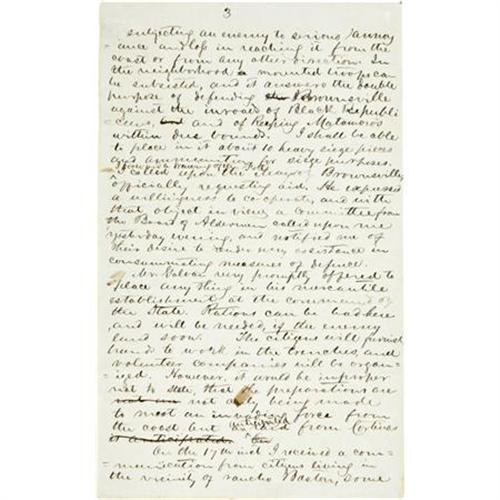 3
subjecting an enemy to serious annoy
ance and loss in reaching it from the
coast or from any other direction. In
the neighborhood a mounted troops can
be subsisted, and it answers the double
purpose of defending Brownsville
against the inroads of Black Republi
cans, and of keeping Matamoros
within due bounds. I shall be able
to place in it about 10 heavy siege pieces
and ammunition for siege purposes.
I called upon the Mayor of Brownsville,
officially requesting aid. He expressed
a willingness to co-operate, and with
that object in view a committee from
the Board of Aldermen called upon me
yesterday evening, and notified me of
their desire to render any assistance in
consummating measures of defence.
Mr. Galvan very promptly offered to
place any thing in his mercantile
establishment at the command of
the State. Rations can be had here
and will be needed, if the enemy
land soon. The citizens will furnish
hands to work in the trenches, and
volunteer companies will be organ-
ized. However, it would be improper
not to state, that the preparations are
not only being made
to meet an invading force from
the coast but an anticipated raid from Cortinas
it anticipated.
On the 17th inst I received a com-
munication from citizens living in
the vicinity of rancho Baston, some